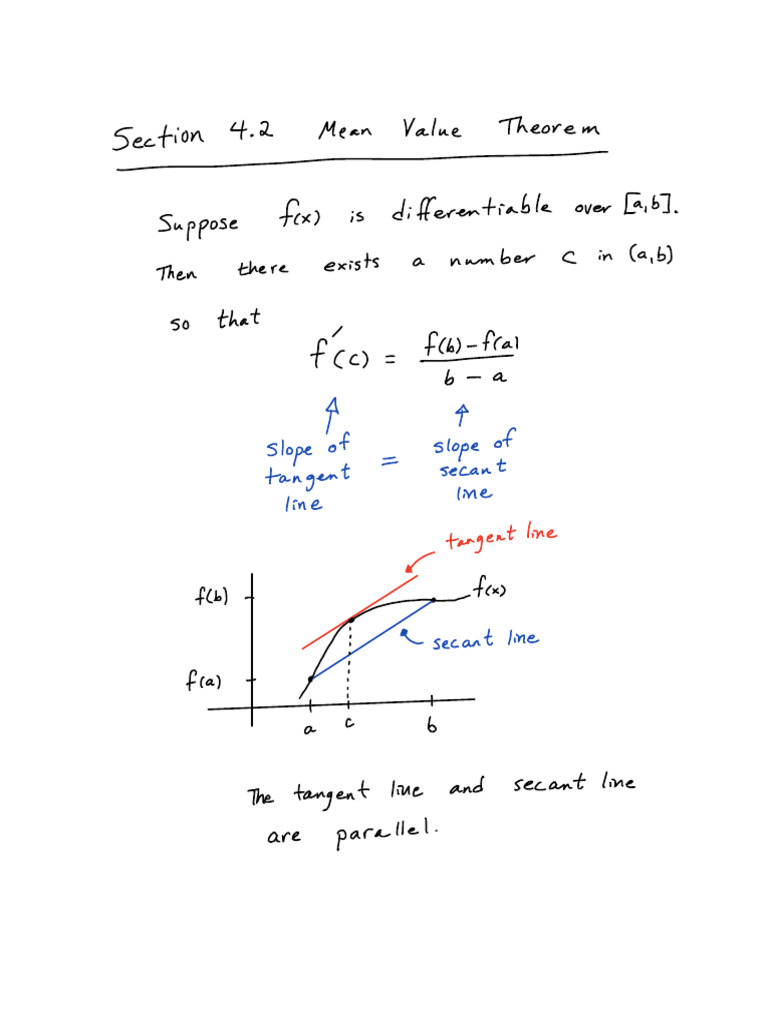 Section 4.2 Mean Value Theorem
Suppose f(x) is differentiable over [a,b].
Then there exists a number c in (a,b)
so that
f'(c) = f(b)-f(a) / b - a
slope of tangent line = slope of secant line
tangent line
f(b)
f(x)
secant line
f(a)
a c b
The tangent line and secant line
are parallel.